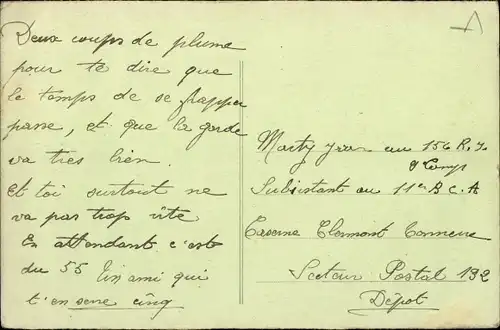 Deux coups de plume
pour te dire que
le temps de se frapper
passe, et que la garde
va tres bien.
Et toi surtout ne
va pas trop vite
En attendant c'est
du 55 Un ami qui
t'en serre cinq
Marty Jean au 156 R. I.
9 Comp
Subsistant au 11e B C A
Caserne Clermont Tonnerre
Secteur Postal 192
Dépot